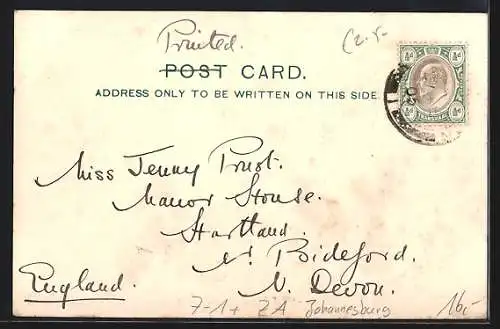 Printed.
(2.5-
POST CARD.
ADDRESS ONLY TO BE WRITTEN ON THIS SIDE.
Miss Jenny Prust.
Manor House.
Hartland.
nr Bideford.
N. Devon.
England.
7-1+ ZA Johannesburg
16,-